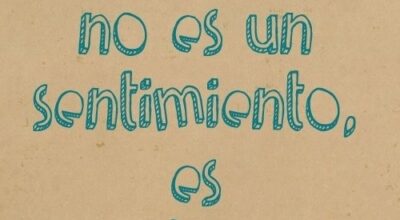 no es un
sentimiento,
es